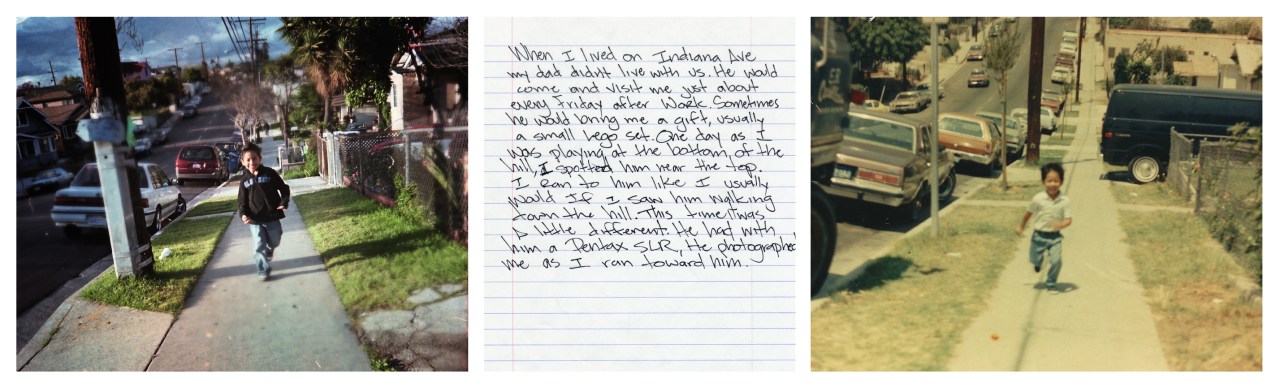 When I lived on Indiana Ave
my dad didn't live with us. He would
come and visit me just about
every Friday after work. Sometimes
he would bring me a gift, usually
a small lego set. One day as I
was playing at the bottom, of the
hill, I spotted him near the top.
I ran to him like I usually
would if I saw him walking
down the hill. This time it was
a little different. He had with
him a Pentax SLR, He photographed
me as I ran toward him.